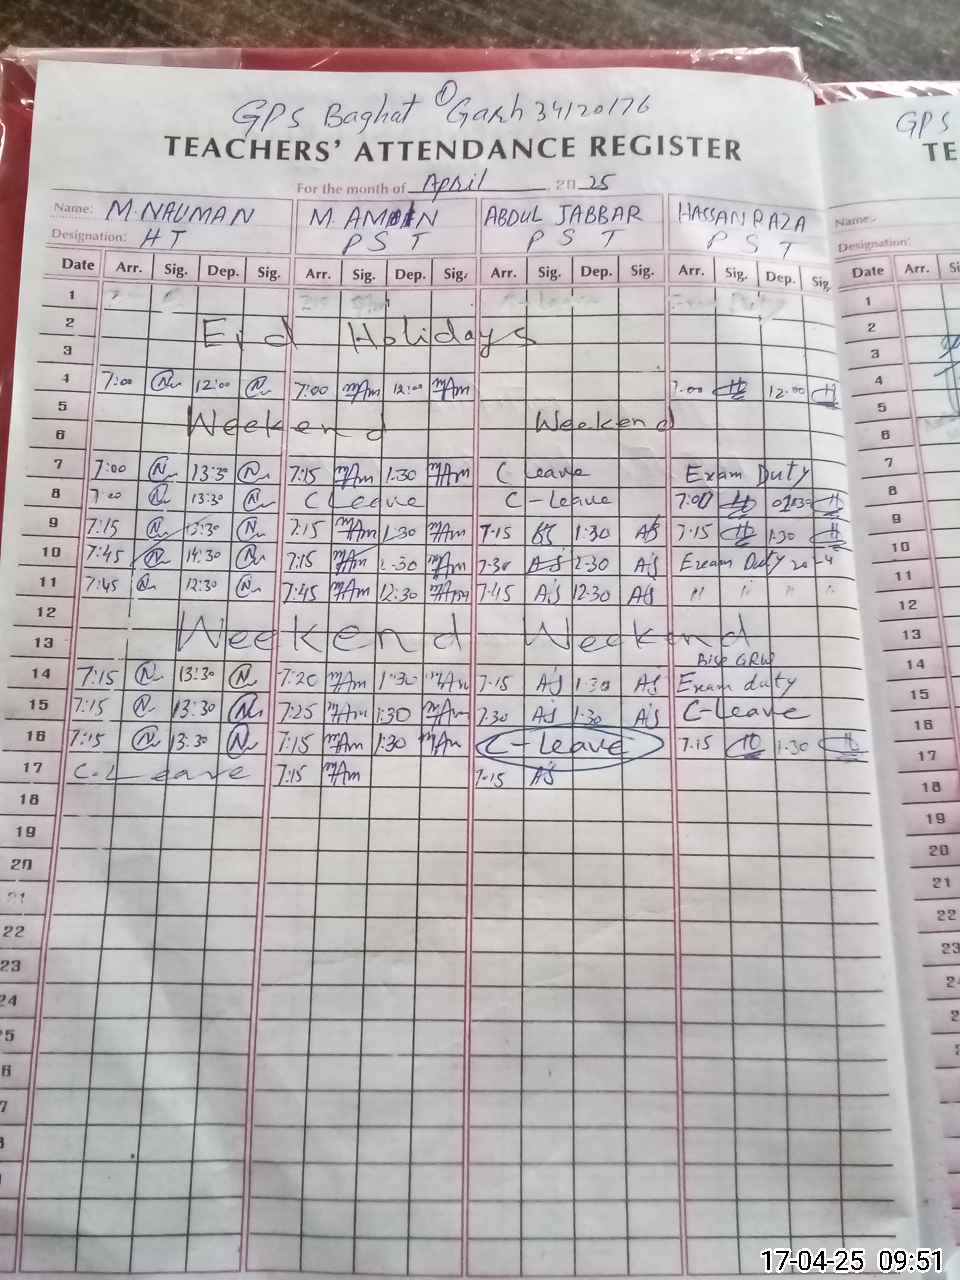 GPS Baghat Garh 34120176
TEACHERS' ATTENDANCE REGISTER
For the month of April 2025
Name: M. NAUMAN M. AMIN ABDUL JABBAR HASSAN RAZA
Designation: H T P S T P S T P S T
Date Arr. Sig. Dep. Sig. Arr. Sig. Dep. Sig. Arr. Sig. Dep. Sig. Arr. Sig. Dep. Sig.
1
2 Eid Holidays
3
4 7:00 N 12:00 N 7:00 mAm 12:00 mAm 7:00 H 12:00 H
5 Weekend Weekend
6
7 7:00 N 13:30 N 7:15 mAm 1:30 mAm C leave Exam Duty
8 7:00 N 13:30 N C Leave C-leave 7:00 H H
9 7:15 N 13:30 N 7:15 mAm 1:30 mAm 7:15 AJ 1:30 AJ 7:15 H 1:30 H
10 7:45 N 14:30 N 7:15 mAm 2:30 mAm 7:30 AJ 2:30 AJ Exam Duty
11 7:45 N 12:30 N 7:45 mAm 12:30 mAm 7:45 AJ 12:30 AJ " " " "
12 Weekend Weekend
13
Bise GRW
14 7:15 N 13:30 N 7:20 mAm 1:30 mAm 7:15 AJ 1:30 AJ Exam duty
15 7:15 N 13:30 N 7:25 mAm 1:30 mAm 7:30 AJ 1:30 AJ C-Leave
16 7:15 N 13:30 N 7:15 mAm 1:30 mAm C-Leave 7:15 H 1:30 H
17 C-Leave 7:15 mAm 7:15 AJ
18
19
20
21
22
23
24
GPS
TE
Name:
Designation:
Date Arr.
1
2
3
4
5
6
7
8
9
10
11
12
13
14
15
16
17
18
19
20
21
22
23
17-04-25 09:51